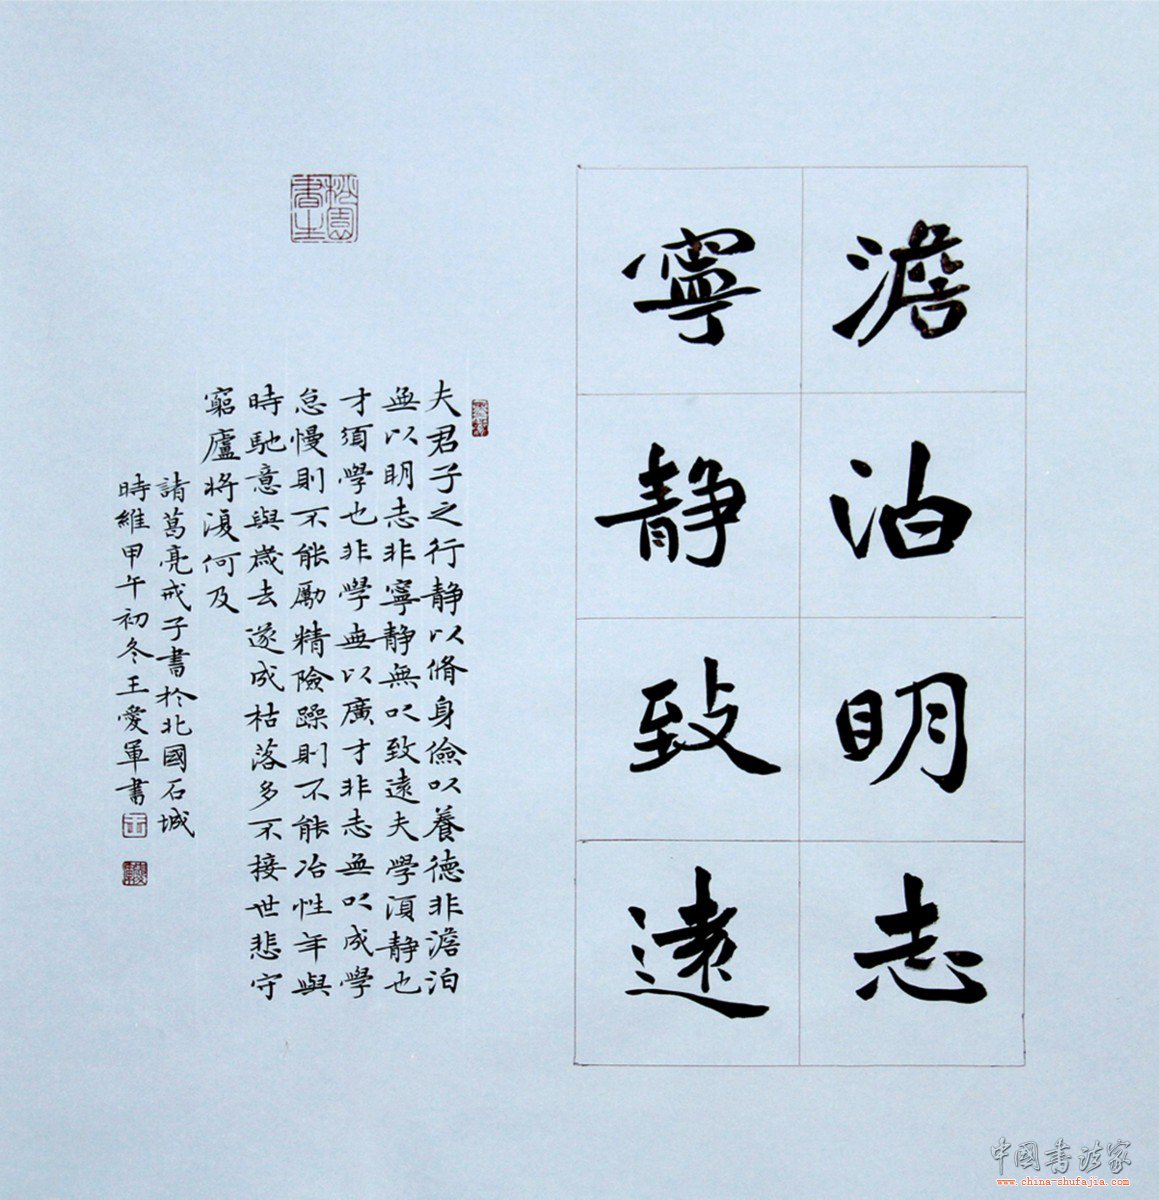 澹泊明志
寧静致遠
夫君子之行静以脩身儉以養德非澹泊
無以明志非寧静無以致遠夫學須静也
才須學也非學無以廣才非志無以成學
怠慢則不能勵精險躁則不能冶性年與
時馳意與歲去遂成枯落多不接世悲守
窮廬将復何及
諸葛亮戒子書於北國石城
時維甲午初冬王愛軍書
桃園書生
中国书法家
www.china-shufajia.com